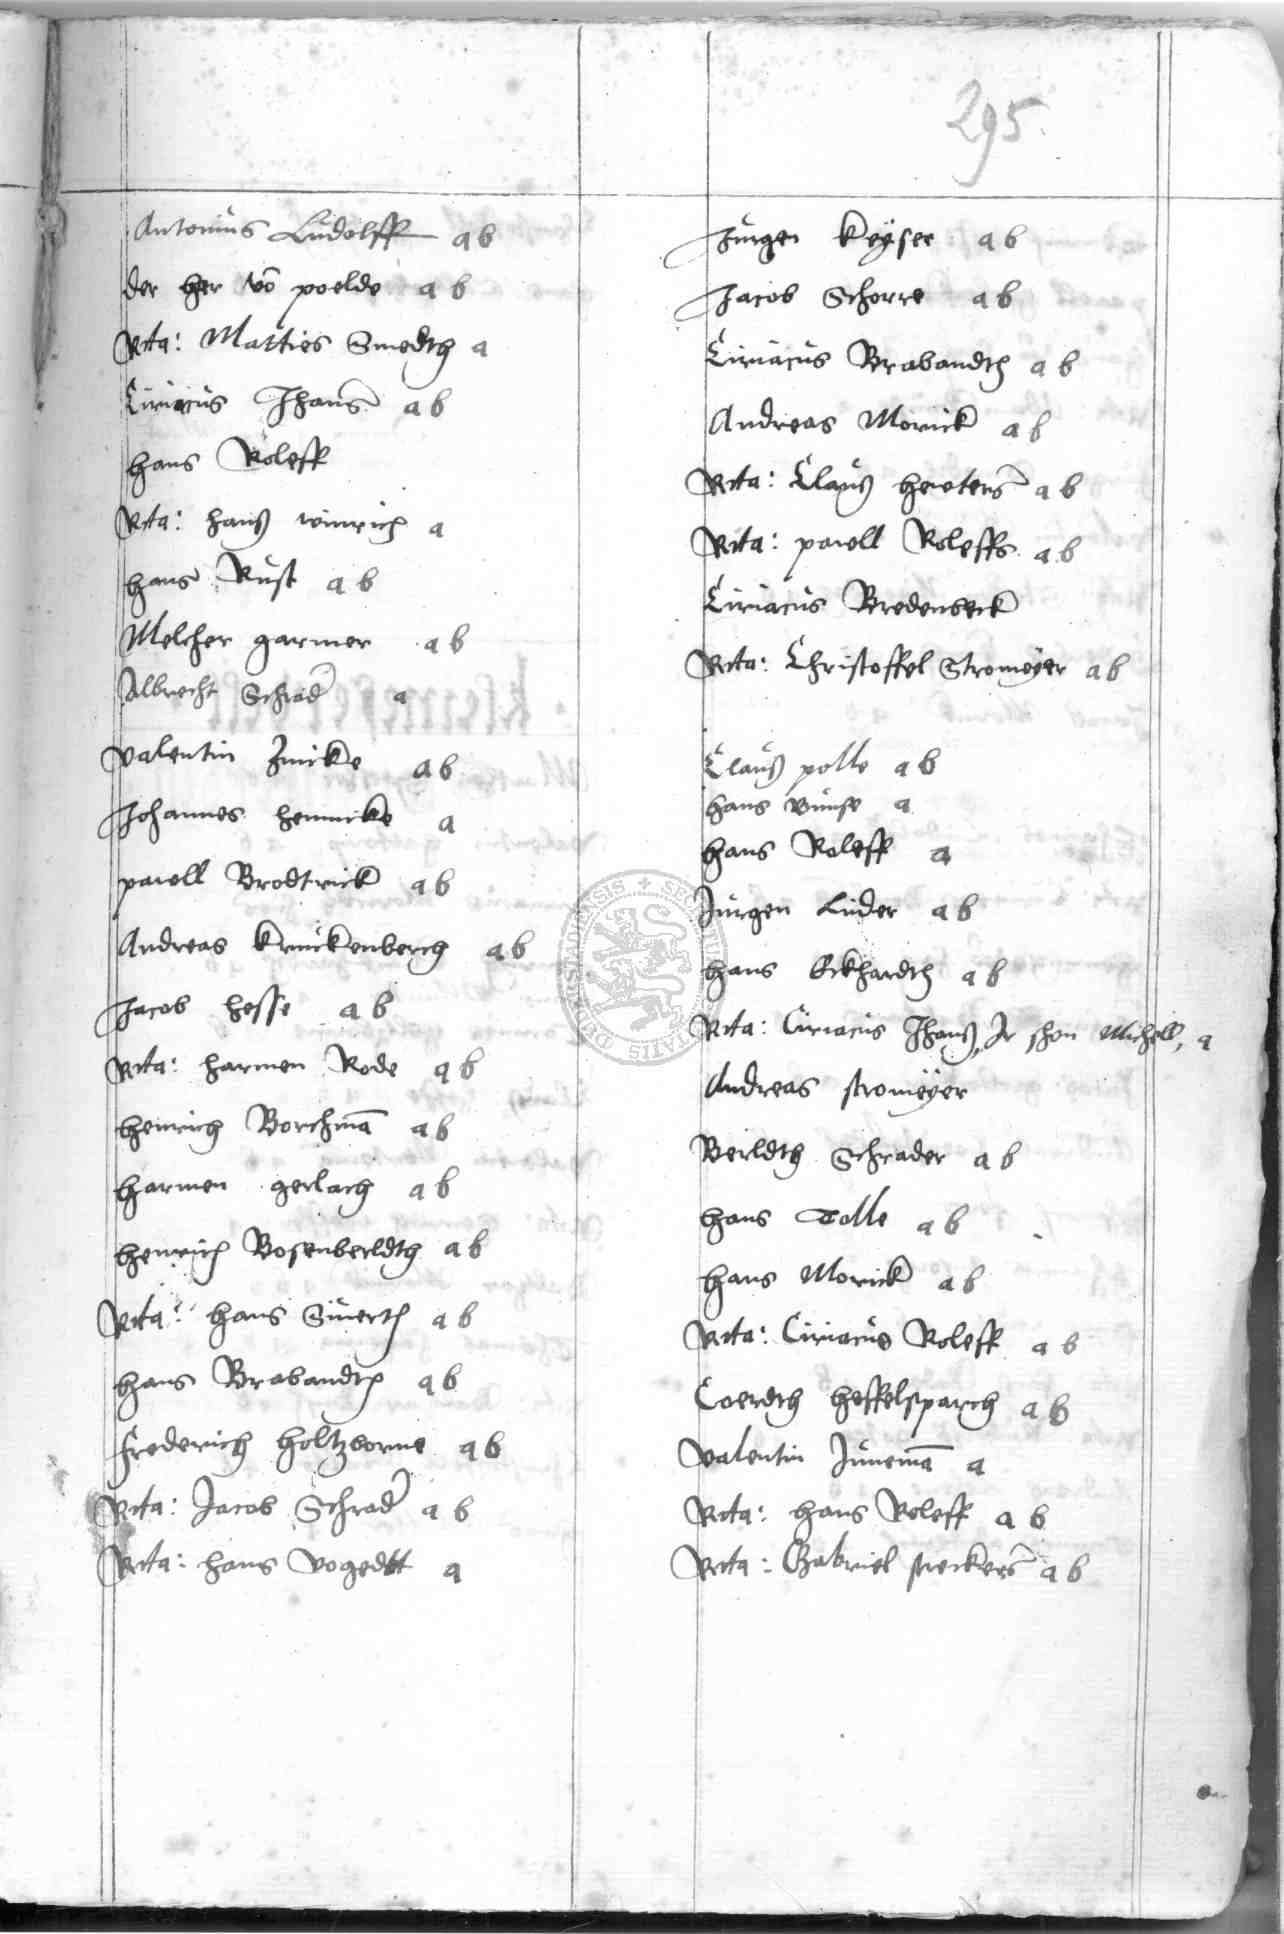 295
Antonius Ludolff a b
der her vō poelde a b
Rta: Matties Smedth a
Ciriacus Jhans a b
hans Roleff
Rta: hanß winrich a
hans Rust a b
Melcher garmer a b
Albrecht Schrad a
valentin Zincke a b
Johannes hennicke a
pawell Brodtrick a b
Andreas kruckenberch a b
Jacob hesse a b
Rta: harmen Rode a b
henrich Borchmā a b
harmen gerlach a b
henrich Bosenberldth a b
Rta: hans Siuerth a b
hans Brabandth a b
frederich holtzborne a b
Rta: Jacob Schrad a b
Rta: hans vogedtt a
Jurgen keÿser a b
Jacob Schorre a b
Ciriacus Brabandth a b
Andreas Morick a b
Rta: Clauß heioters a b
Rta: pawell Roleffs a b
Ciriacus Bredenbeck
Rta: Christoffel Stromeÿer a b
Clauß polle a b
hans Bunse a
hans Roleff a
Jurgen Luder a b
hans Eckhardth a b
Rta: Ciriacus Jhanß, Jr shon Michell, a
Andreas stromeÿer
Berldth Schrader a b
hans Tolle a b
hans Morick a b
Rta: Ciriacus Roleff a b
Coerdth heffelsparch a b
valentin Junemā a
Rta: hans Roleff a b
Rta: Gabriel streckers a b
SIGILLUM DUDERSTADENSIS CIVITATIS